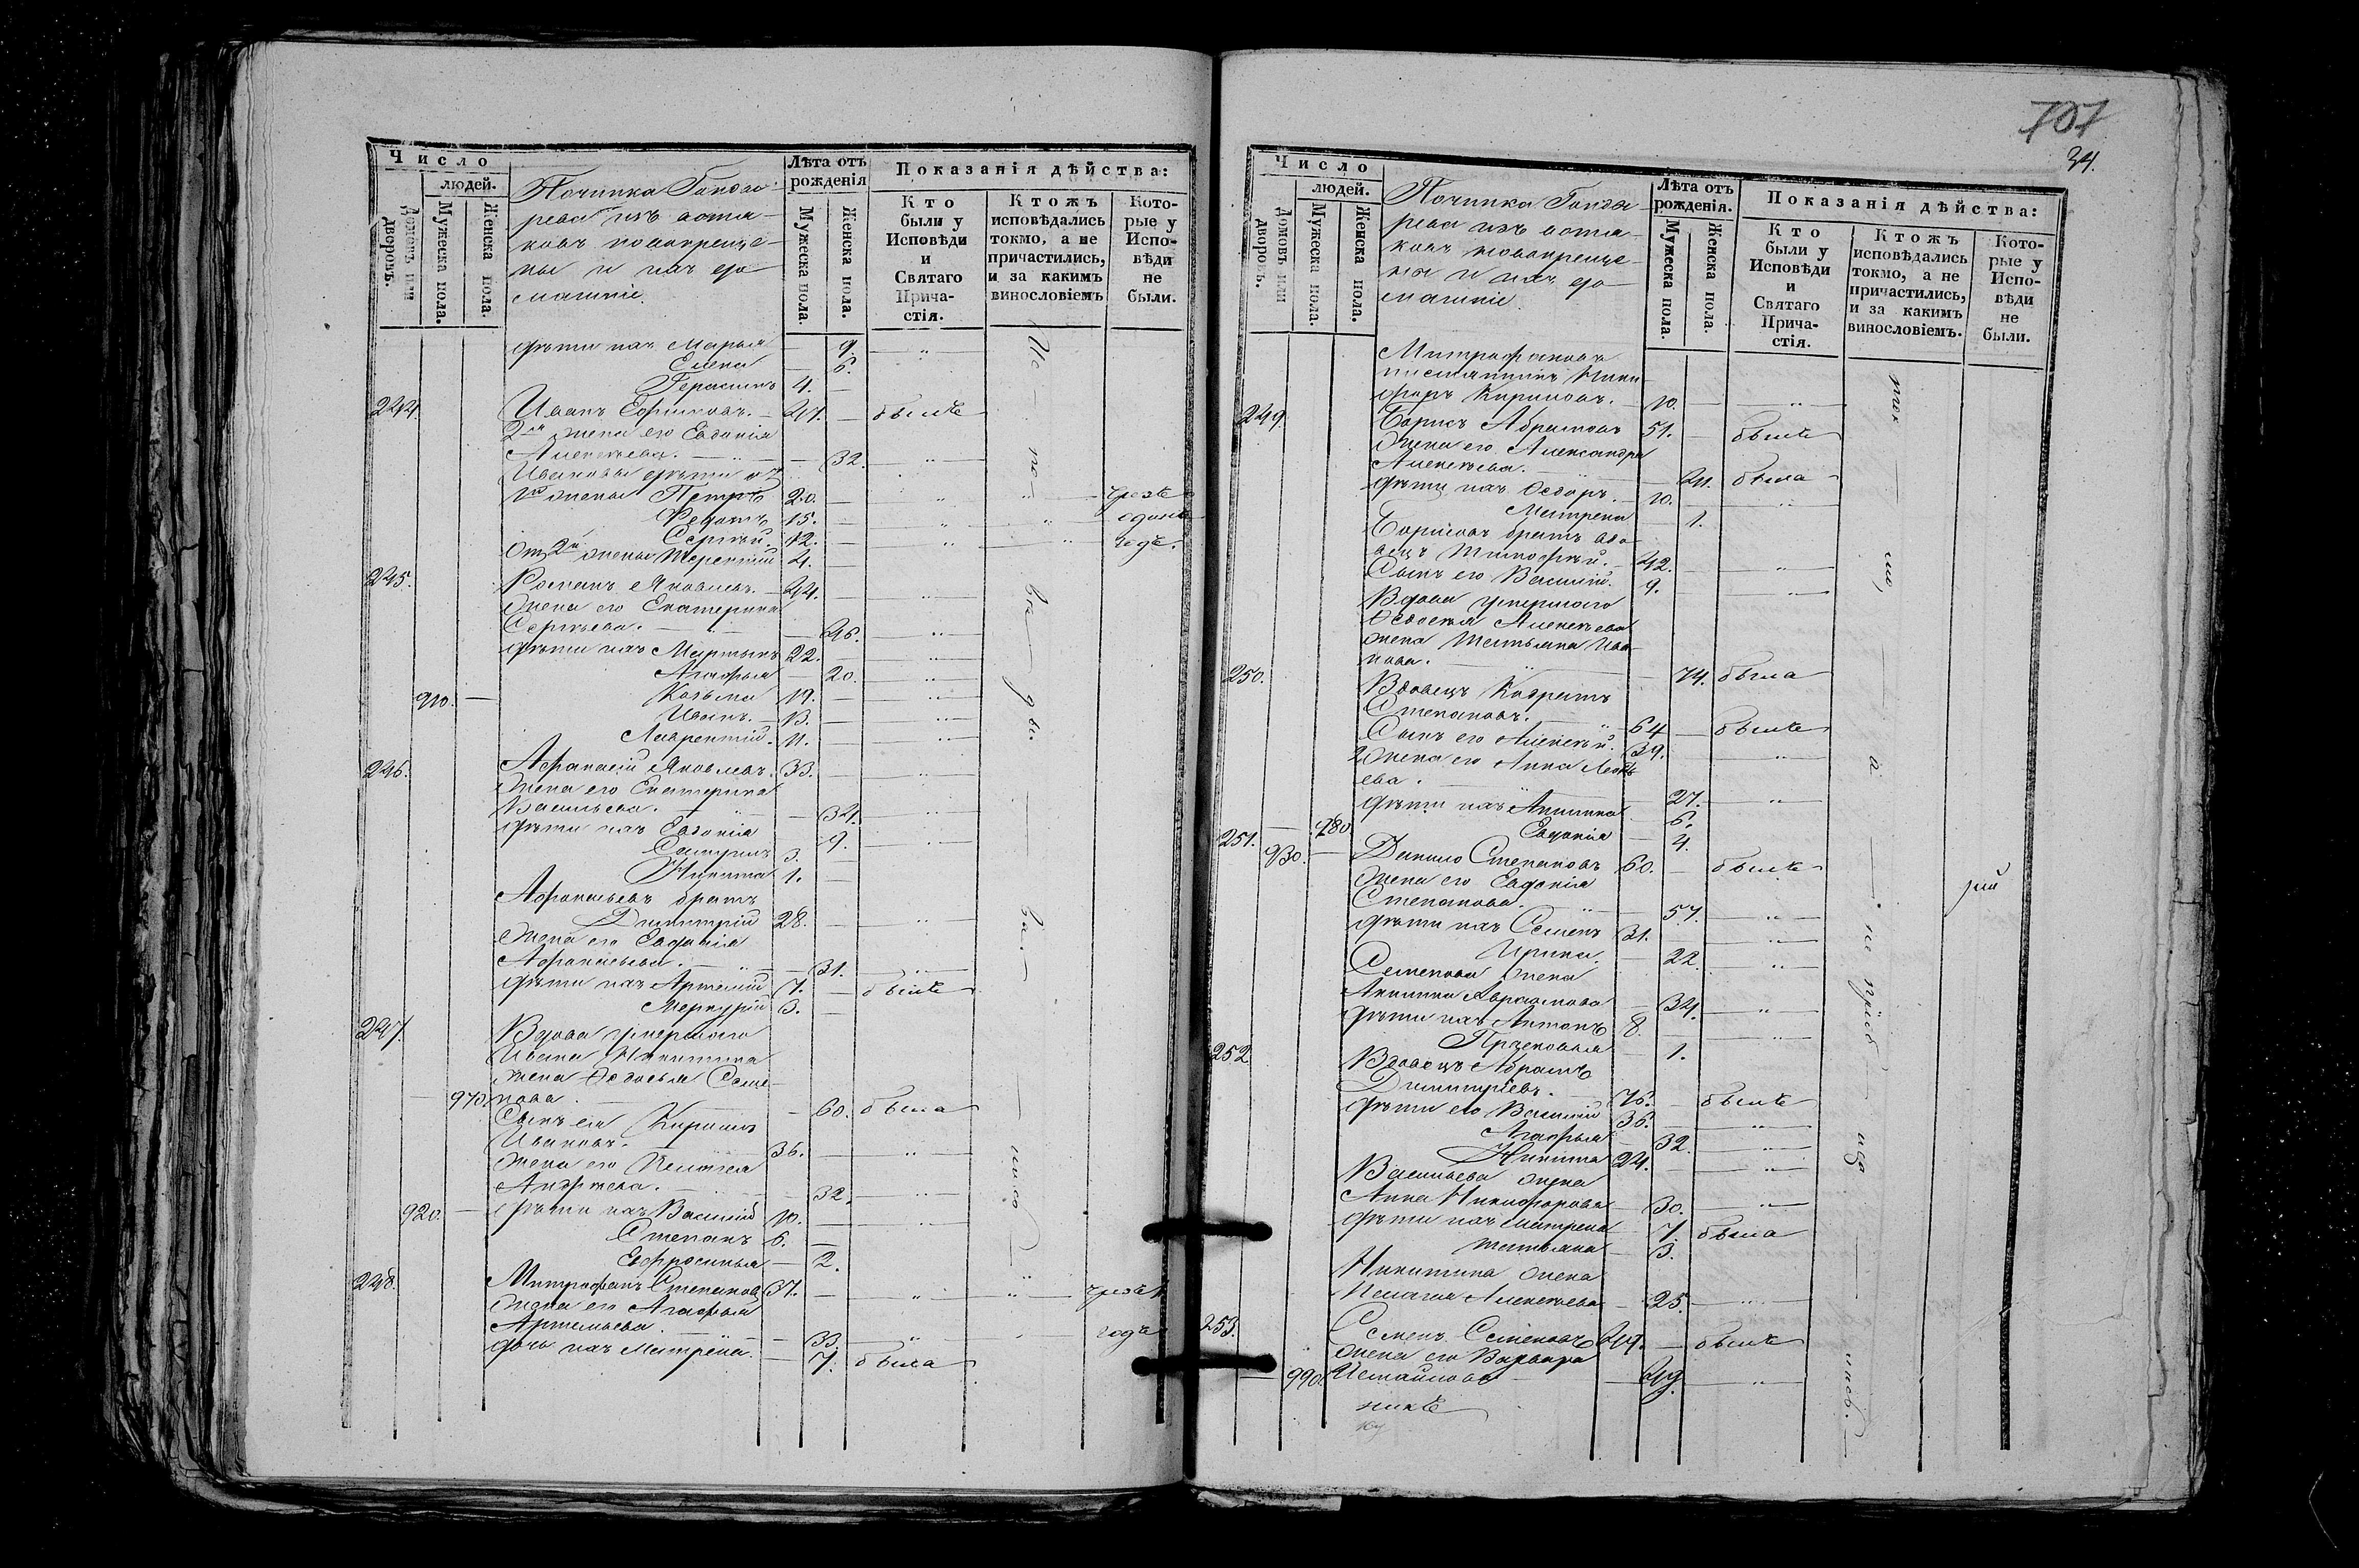 Число
людей.
Домовъ или дворовъ.
Мужеска пола.
Женска пола.
Починка Гонды-
рева изъ вотя-
ковъ новокреще-
ны и ихъ до-
машніе.
Лѣта отъ рожденія
Мужеска пола.
Женска пола.
Показанія дѣйства:
Кто были у Исповѣди и Святаго Прича- стія.
Ктожъ исповѣдались токмо, а не причастились, и за какимъ винословіемъ
Кото- рые у Испо- вѣди не были.
дѣти ихъ Марья — 9. — „
Елена — 6.
Герасимъ 4. —
244. Иванъ Ефимовъ. — 47. — былъ
2я жена его Евдокія
Алексѣева. — „ — 32. — „
Ивановы дѣти отъ
1й жены Петръ 20. — „ — „
Федотъ 15. — „ — „
Сергѣй. 12. — „ — „ годъ.
От 2й жены Терентій 4. —
245. Романъ Яковлевъ. — 44. — „
Жена его Екатерина
Сергѣева. — „ — 46. — „
дѣти ихъ Мартынъ 22. — „
Агафья — 20. — „
910. — Козьма 19. — „
Иванъ. — 13. — „
Лаврентій. 11. — „
246. Афанасій Яковлевъ. 33. — „
Жена его Екатерина
Васильева. — „ — 34. — „
дѣти ихъ Евдокія — 9. — „
3. —
Никита 1. —
Афанасьевъ братъ
Димитрій 28. — „
Жена его Евдокія
Афанасьева. — „ — 31. — „
дѣти ихъ Артемій 7. — былъ
Меркурій 3. —
247. Вдова умершаго
Ивана Никитина
жена Ѳедосья Семе-
970. нова. — 60. была
Сынъ ея Кирилъ
Ивановъ. 36. — „
Жена его Пелагея
Андреева. — 32. — „
920. — дѣти ихъ Василій 10. — „
Степанъ 6. —
Ефросинья — 2.
248. Митрофанъ Степановъ 37. — „ — „
Жена его Агафья
Артемьева. — 33. — „ годъ
дочь ихъ Матрена. — 7. была
707
34.
Число
людей.
Домовъ или дворовъ.
Мужеска пола.
Женска пола.
Починка Гонды-
рева изъ вотя-
ковъ новокреще-
ны и ихъ до-
машніе
Лѣта отъ рожденія.
Мужеска пола.
Женска пола.
Показанія дѣйства:
Кто были у Исповѣди и Святаго Прича- стія.
Ктожъ исповѣдались токмо, а не причастились, и за какимъ винословіемъ.
Кото- рые у Испо- вѣди не были.
Митрофановъ
Ники-
форъ Кириловъ. — 10. — „
249. Борисъ Абрамовъ 51. — былъ
Жена его Александра
Алексѣева. — была
дѣти ихъ Ѳедоръ. — 10. — „
Матрена — 1.
Борисовъ братъ вдо-
вецъ Тимофѣй. — 42. — „
Сынъ его Василій. 9. — „
Вдова умершаго
Ѳедосѣя Алексѣева
жена Татьяна Ива-
нова. — „ — 74. была
250. Вдовецъ Кодратъ
Степановъ. — „ 64 — былъ
Сынъ его Алексѣй. 39. — „
Жена его Анна
ева. — „ — 27. — „
дѣти ихъ Акилина — 6.
980 Евдокія — 4.
251. 930. — Данило Степановъ 60. — былъ
Жена его Евдокія
Степанова. — „ — 57. — „
дѣти ихъ Семенъ 31. — „
Ирина. — 22. — „
Семенова жена
Акилина Авраамова — 34. — „
дѣти ихъ Антонъ 8. — „
Прасковья — 1.
252. Вдовецъ Абрамъ
Димитріевъ. — 76. — былъ
дѣти его Василій 36. — „
Агафья — 32. — „
Никита 24. — „
Васильева жена
Анна Никифорова — 30. — „
дѣти ихъ Матрена — 7. была
Татьяна — 3.
Никитина жена
Пелагея Алексѣева — 25. — „
253. Семенъ Семеновъ 49. — былъ
Жена его Варвара
990. Исмайлова — 49. — „